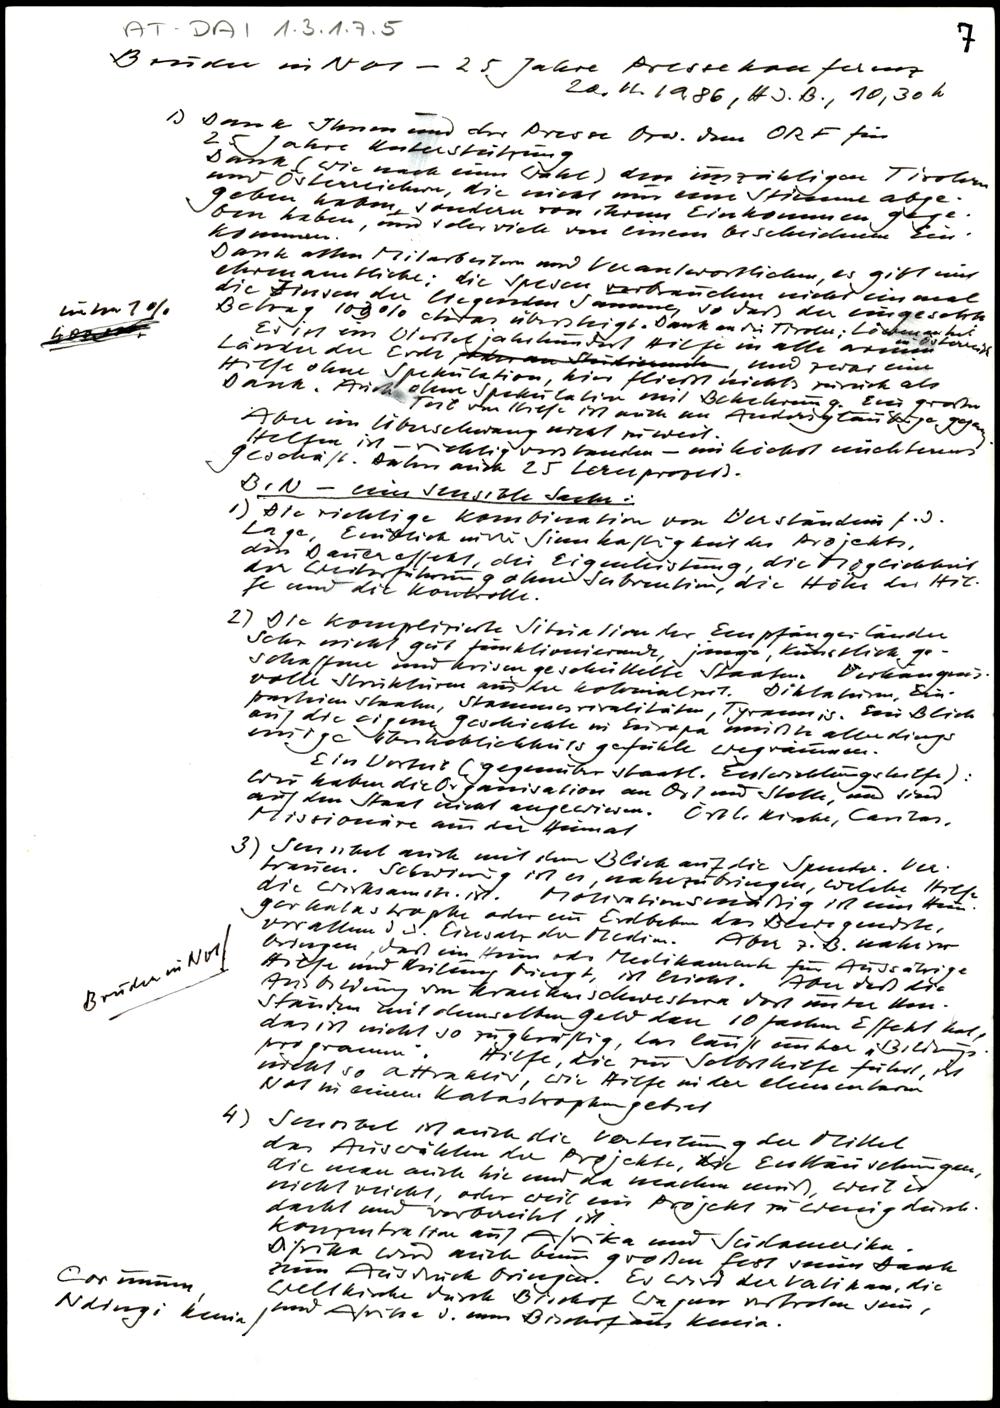 AT-DAI 1.3.1.7.5
7
Bruder in Not – 25 Jahre Pressekonferenz
20.11.1986, H.D.B., 10,30 h
1) Dank Ihnen und der Presse bzw. dem ORF für
25 Jahre Unterstützung
Dank (wie nach einer Wahl) den unzähligen Tirolern
und Österreichern, die nicht nur eine Stimme abge-
geben haben, sondern von ihrem Einkommen gege-
ben haben, und sehr viele von einem bescheidenen Ein-
kommen.
Dank allen Mitarbeitern und Verantwortlichen, es gibt nur
ehrenamtliche; die Spesen verbrauchen nicht einmal
die Zinsen der liegenden Summe, so daß der eingesetzte
unter 2 %
Betrag 100 % etwas übersteigt. Dank an die Tiroler:
in Österreich
Es ist im Vierteljahrhundert Hilfe in alle armen
Länder der Erde, und zwar eine
Hilfe ohne Spekulation, hier fließt nichts zurück als
Dank. Auch ohne Spekulation mit Bekehrung. Ein großer
Teil der Hilfe ist auch an Andersgläubige gegangen.
Aber im Überschwang nicht zu weit.
Helfen ist – richtig verstanden – ein höchst nüchternes
Geschäft. Daher auch 25 Lernprozeß.
B.i.N – eine sensible Sache:
1) Die richtige Kombination von Verständnis f. d.
Lage, Einblick in die Sinnhaftigkeit des Projekts,
den Dauereffekt, die Eigenleistung, die Möglichkeit
der Weiterführung ohne Subvention, die Höhe der Hil-
fe und die Kontrolle.
2) Die komplizierte Situation der Empfängerländer
Sehr nicht gut funktionierende, junge, künstlich ge-
schaffene und krisengeschüttelte Staaten. Verhängnis-
volle Strukturen aus der Kolonialzeit. Diktaturen, Ein-
parteienstaaten, Stammesrivalitäten, Tyrannis. Ein Blick
auf die eigene Geschichte in Europa müßte allerdings
einige Überheblichkeitsgefühle wegräumen.
Ein Vorteil (gegenüber staatl. Entwicklungshilfe):
Wir haben die Organisation an Ort und Stelle, und sind
auf den Staat nicht angewiesen. Örtl. Kirche, Caritas,
Missionäre aus der Heimat
3) Sensibel auch mit dem Blick auf die Spender. Ver-
trauen. Schwierig ist es, nahezubringen, welche Hilfe
die wirksamste ist. Motivationsmäßig ist eine Hun-
gerkatastrophe oder ein Erdbeben das Bewegendste,
vor allem d. d. Einsatz der Medien. Aber z. B. nahezu-
bringen, daß ein Heim oder Medikamente für Aussätzige
Hilfe und Heilung bringt, ist leicht. Aber daß die
Bruder in Not!
Ausbildung von Krankenschwestern dort unter Um-
ständen mit demselben Geld den 10 fachen Effekt hat,
das ist nicht so zugkräftig, das läuft unter „Bildungs-
programm". Hilfe, die zur Selbsthilfe führt, ist
nicht so attraktiv, wie Hilfe in der elementaren
Not in einem Katastrophengebiet
4) Sensibel ist auch die Verteilung der Mittel
das Auswählen der Projekte, die Enttäuschungen,
die man auch hie und da machen muß, weil es
nicht reicht, oder weil ein Projekt zu wenig durch-
dacht und vorbereitet ist.
Konzentration auf Afrika und Südamerika.
Afrika wird auch beim großen Fest seinen Dank
zum Ausdruck bringen. Es wird der Vatikan, die
Weltkirche durch Bischof Wagner vertreten sein,
und Afrika d. einen Bischof aus Kenia.
Ndingi Kenia